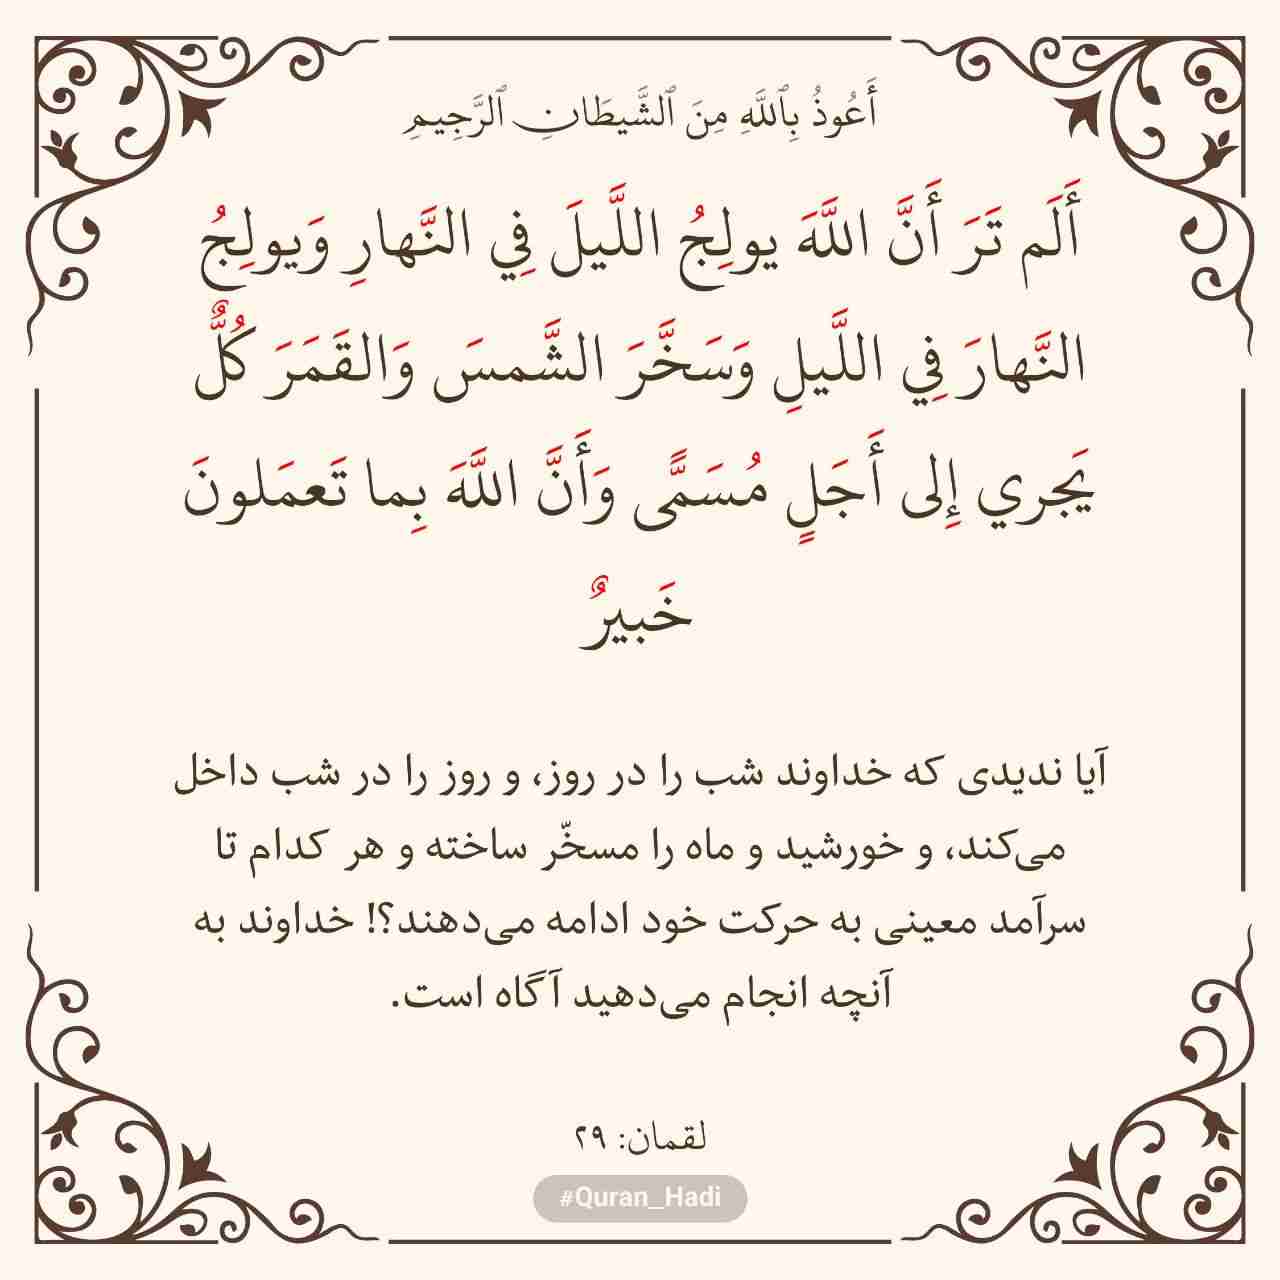 أَعُوذُ بِٱللَّهِ مِنَ ٱلشَّيطَانِ ٱلرَّجِيمِ
أَلَم تَرَ أَنَّ اللَّهَ يولِجُ اللَّيلَ فِي النَّهارِ وَيولِجُ
النَّهارَ فِي اللَّيلِ وَسَخَّرَ الشَّمسَ وَالقَمَرَ كُلٌّ
يَجري إِلى أَجَلٍ مُسَمًّى وَأَنَّ اللَّهَ بِما تَعمَلونَ
خَبيرٌ
آیا ندیدی که خداوند شب را در روز، و روز را در شب داخل
می‌کند، و خورشید و ماه را مسخّر ساخته و هر کدام تا
سرآمد معینی به حرکت خود ادامه می‌دهند؟! خداوند به
آنچه انجام می‌دهید آگاه است.
لقمان: ۲۹
#Quran_Hadi